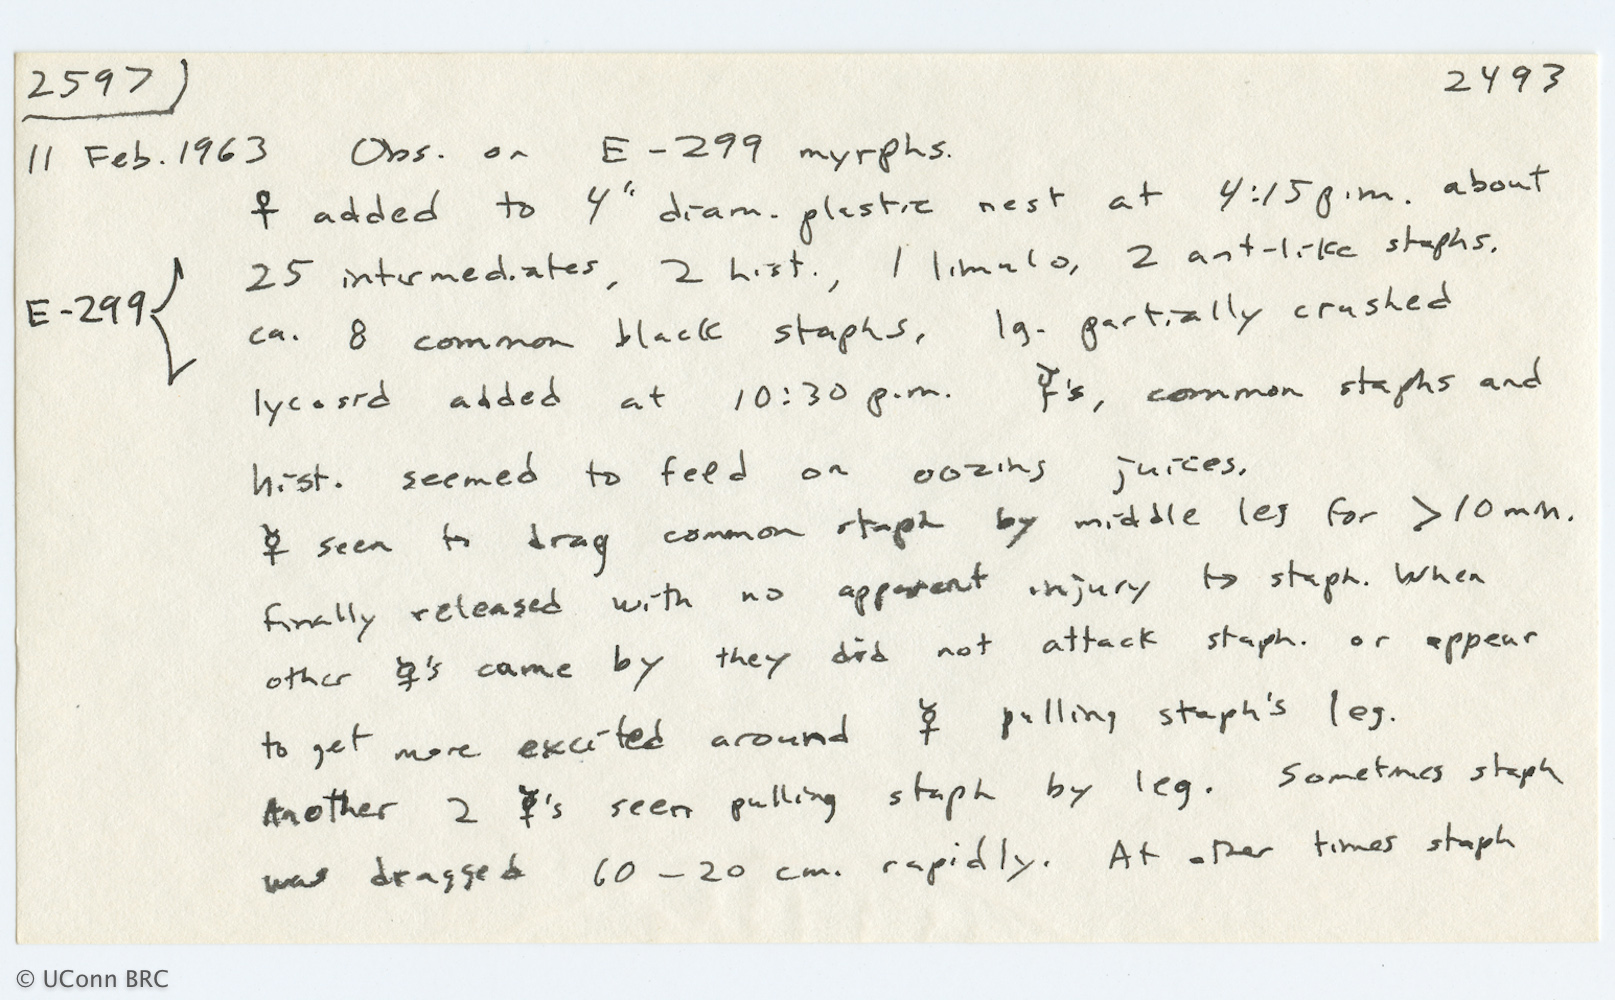 2597)
2493
11 Feb. 1963 Obs. on E-299 myrphs.
♀ added to 4" diam. plastic nest at 4:15 p.m. about
25 intermediates, 2 hist., 1 limulo, 2 ant-like staphs.
E-299 {
ca. 8 common black staphs, lg. partially crushed
lycosid added at 10:30 p.m. ☿'s, common staphs and
hist. seemed to feed on oozing juices.
☿ seen to drag common staph by middle leg for >10 min.
finally released with no apparent injury to staph. When
other ☿'s came by they did not attack staph. or appear
to get more excited around ☿ pulling staph's leg.
Another 2 ☿'s seen pulling staph by leg. Sometimes staph
was dragged 10-20 cm. rapidly. At other times staph
© UConn BRC